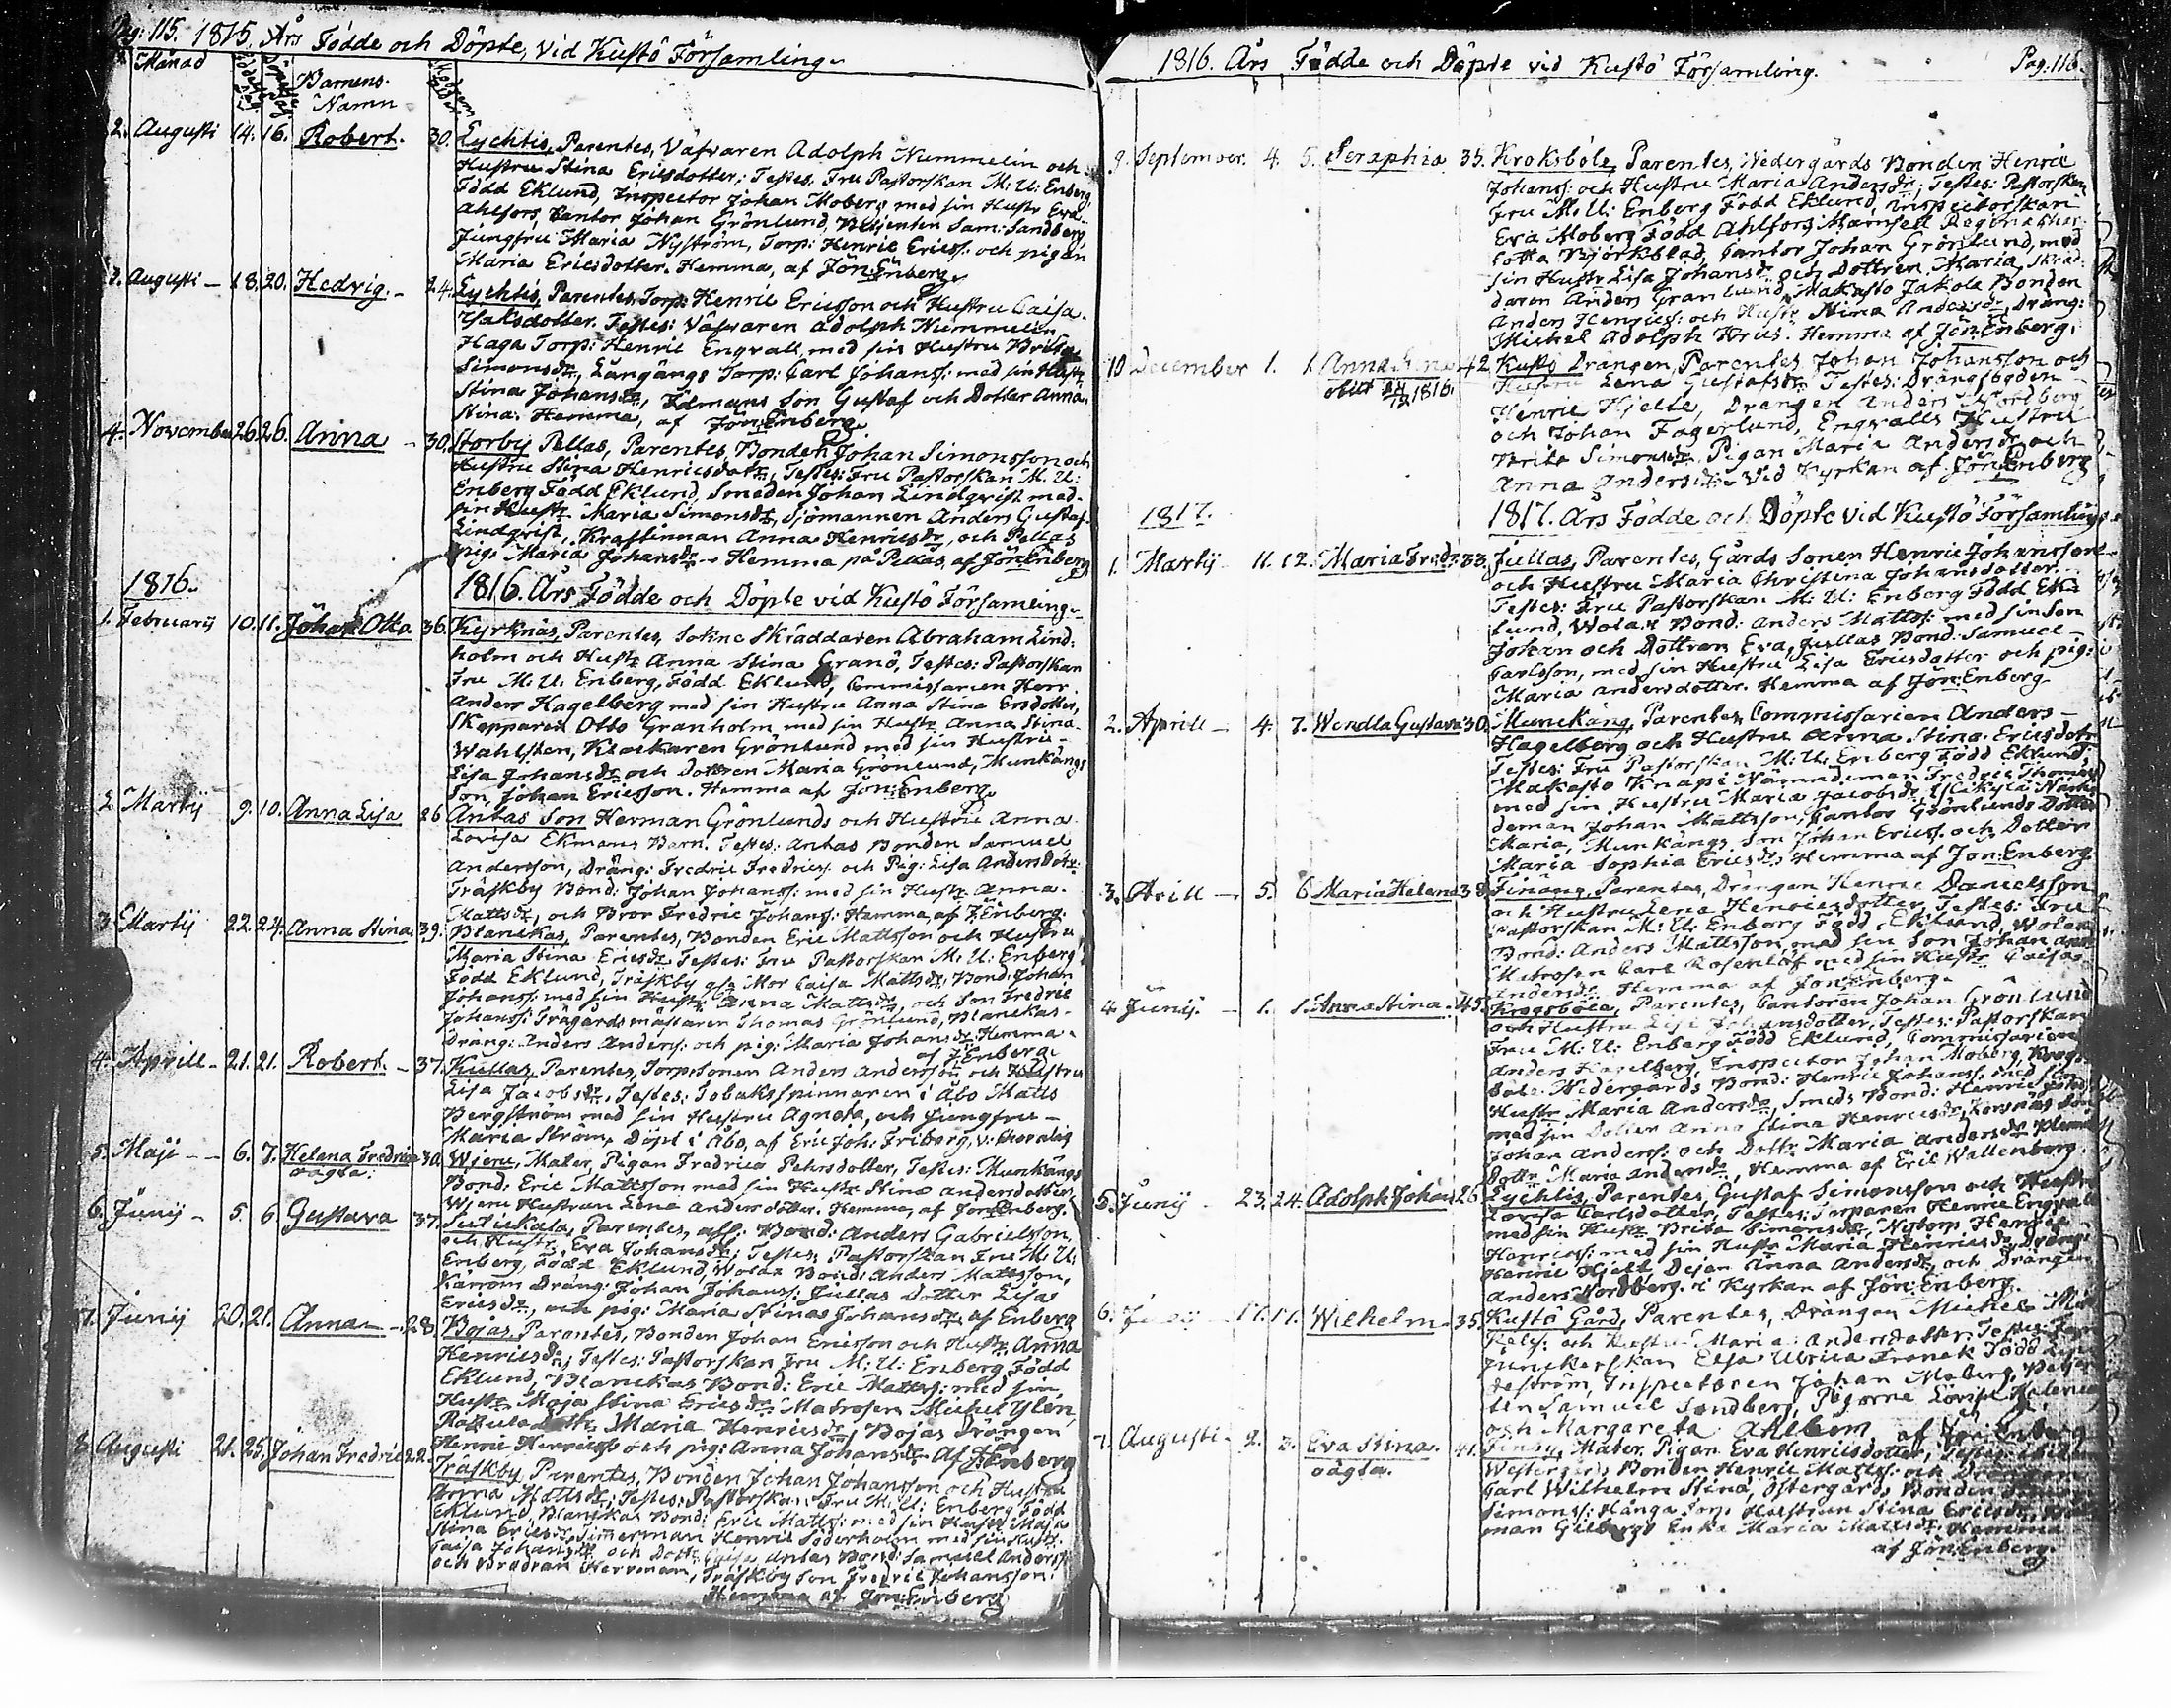 Pag: 115. 1815. Års Födde och Döpte, vid Kustö Församling.
Månad
Barnens
Namn
2. Augusti 14. 16. Robert. 30. Lychtis, Parentes, Väfvaren Adolph Nummelin och
Hustru Stina Ericsdotter; Testes, Fru Pastorskan M: U: Enberg,
Född Eklund, Inspector Johan Moberg med sin Hustr Eva
Ahlfors, Cantor Johan Grönlund, Betjenten Sam: Sandberg
Jungfru Maria Nyström, Torp: Henric Ericss: och pigan
Maria Ericsdotter. Hemma, af Jön: Enberg.
3. Augusti – 18. 20. Hedvig. – 24. Lychtis, Parentes, Torp: Henric Ericsson och Hustru Caisa
Isaksdotter. Testes: Väfvaren Adolph Nummelin
Haga Torp: Henric Engvall, med sin Hustru Brita
Simonsdr, Långängs Torp: Carl Johanss: med sin Hustr
Stina Johansdr, Edmans Son Gustaf och Dotter Anna
Stina. Hemma, af Jön: Enberg
4. November 26. 26. Anna – 30. Storby Pellas, Parentes, Bonden Johan Simonsson och
Hustru Stina Henricsdottr, Testes: Fru Pastorskan M. U:
Enberg Född Eklund, Smeden Johan Lindqvist med
sin Hustr Maria Simonsdr, Sjömannen Anders Gustaf
Lindqvist, Anna Henricsdr, och Pellas
pig: Maria Johansdr – Hemma på Pellas, af Jön: Enberg
1816. 1816. Års Födde och Döpte vid Kustö Församling.
1. Februarij 10. 11. Johan Otto 36. Kyrknäs, Parentes, Sokne Skräddaren Abraham Lind:
holm och Hustr Anna Stina Granö, Testes: Pastorskan
Fru M: U: Enberg, Född Eklund, Commissarien Herr
Anders Hagelberg med sin Hustru Anna Stina Ersdotter,
Skepparen Otto Granholm med sin Hustr Anna Stina
Wahlsten, Klockaren Grönlund med sin Hustru
Lisa Johansdr och Dottren Maria Grönlund, Munkängs
Son, Johan Ericsson. Hemma af Jön: Enberg.
2. Martij 9. 10. Anna Lisa 26 Antas Son Herman Grönlunds och Hustru Anna
Lovisa Ekmans Barn. Testes: Antas Bonden Samuel
Andersson, Dräng: Fredric Fredricss. och Pig: Lisa Anders Dotr:
Träskby Bond: Johan Johanss: med sin Hustr Anna
Mattsdr, och Bror Fredric Johanss: Hemma, af J: Enberg.
3 Martij 22. 24. Anna Stina. 39. Blanckas, Parentes, Bonden Eric Mattsson och Hustru
Maria Stina Ericsdr, Testes: Fru Pastorskan M. U: Enberg
Född Eklund, Träskby gla Mor Caisa Mattsdr, Bond: Johan
Johanss: med sin Hustr Anna Mattsdr, och Son Fredric
Johanss: Trägårdsmästaren Thomas Grönlund, Blanckas
Dräng: Anders Anderss: och pig: Maria Johansdr. Hemma
af J: Enberg.
4. Aprill – 21. 21. Robert. – 37. Kullas, Parentes, Torpsonen Anders Andersson och Hustru
Lisa Jacobsdr. Testes: Tobaksspinnaren i Åbo Matts
Bergström med sin Hustru Agneta, och Jungfru
Maria Ström, Döpt i Åbo, af Eric Joh: Friberg,
5. Maji – – 6. 7. Helena Fredrica 30. Wjeru, Mater, Pigan Fredrica Pehrsdotter, Testes: Munkängs
oägta: Bond: Eric Mattsson med sin Hustr Stina Andersdotter,
Wjeru Hustrun Lena Andersdotter. Hemma, af Jon: Enberg.
6. Junij – 5. 6 Gustava 37. Parentes, Bond: Anders Gabrielsson
och Hustr Eva Johansdr; Testes: Pastorskan Fru M. U:
Enberg, Född Eklund, Wolax Bond: Anders Mattsson,
Dräng: Johan Johanss: Jullas Dotter Lisa
Ericsdr, och pig: Maria Stina Johansdr, af Enberg
7. Junij 20. 21. Anna – 28. Bojas, Parentes, Bonden Johan Ericsson och Hustr Anna
Henricsdr; Testes: Pastorskan Fru M: U: Enberg Född
Eklund, Blanckas Bond: Eric Mattss: med sin
Hustr Maja Stina Ericsdr; Matrosen Michel Ylen,
Maria Henricsdr, Bojas Drängen
Henric Henricss och pig: Anna Johansdr. Af J: Enberg
8. Augusti 21. 25. Johan Fredric 22. Träskby, Parentes, Bonden Johan Johansson och Hustru
Anna Mattsdr; Testes: Pastorskan Fru M: U: Enberg Född
Eklund, Blanckas Bond: Eric Mattss: med sin Hustr Maja
Stina Ericsdr, Timerman Henric Söderholm med sin Hustr:
Caisa Johansdr, och Dottr Caisa, Antas Bond: Samuel Anderss:
och Brodran Herrman, Träskby Son Fredric Johansson
Hemma af Jon: Enberg
1816. Års Födde och Döpte vid Kustö Församling. Pag. 116.
9. September. 4. 5. Seraphia 35. Kroksböle, Parentes, Nedergårds Bonden Henric
Johanss: och Hustru Maria Andersdr; Testes: Pastorskan
Fru M: U: Enberg Född Eklund, Inspectorskan
Eva Moberg Född Ahlfors, Mamsell Regina Char
lotta Björkblad, Cantor Johan Grönlund, med
sin Hustr Lisa Johansdr och Dottren Maria, Skräd:
daren Anders Granlund, Makasto Jakola Bonden
Anders Henricss: och Hustr Stina Andersdr, Dräng:
Michel Adolph Hemma af Jön: Enberg.
10 December 1. 1. Anna Lena 42 Kustö Drängen, Parentes, Johan Johansson och
obiit 24/12 1816. Hustru Lena Gustafsdr. Testes: Drängs
Henric Hjelte, Drängen Anders Nordberg
och Johan Fagerlund, Engvalls Hustru
Brita Simonsdr. Pigan Maria Andersdr och
Anna Andersdr. Vid Kyrkan af Jön: Enberg
1817. 1817. Års Födde och Döpte vid Kustö Församling
1. Martij 11. 12. Maria Fredr. 33. Jullas, Parentes, Gårds Sonen Henric Johansson
och Hustru Maria Christina Johansdotter.
Testes: Fru Pastorskan M: U: Enberg Född Ek
lund, Wolax Bond: Anders Mattss: med sin Son
Johan och Dottran Eva, Jullas Bond: Samuel
Carlsson, med sin Hustru Lisa Ericsdotter och pig:
Maria Andersdotter. Hemma af Jon: Enberg
2. Aprill – 4. 7. Wendla Gustava 30. Munckäng, Parentes, Commissarien Anders
Hagelberg och Hustru Anna Stina Ericsdotr
Testes: Fru Pastorskan M: U: Enberg Född Eklund,
Makasto Knapi Nämndeman Fredric Thomass
med sin Hustru Maria Jacobsdr, Näm
deman Johan Mattsson, Cantor Grönlunds Dotter
Maria, Munkängs Son Johan Ericss. och Dotter
Maria Sophia Ericsdr, Hemma af Jon: Enberg
3. Arill – 5. 6 Maria Helena 38. Finäng, Parentes, Drängen Henric Danielsson
och Hustru Lena Henricsdotter, Testes: Fru
Pastorskan M: U: Enberg Född Eklund, Wolax
Bond: Anders Mattsson med sin Son Johan
Matrosen Carl Rosenlöf med sin Hustr Caisa
Andersdr Hemma af Jon: Enberg.
4. Junij. – 1. 1. Anna Stina. 45. Krogsböle, Parentes, Cantoren Johan Grönlund
och Hustru Lisa Johansdotter, Testes: Pastorskan
Fru M: U: Enberg Född Eklund, Commissarien
Anders Hagelberg, Inspector Johan Moberg, Krogs
böle Nedergårds Bond: Henric Johanss. med sin
Hustr Maria Andersdr, Smeds Bond: Henric
med sin Dotter Anna Stina Henricsdr, Son
Johan Anderss: och Dottr Maria Andersdr
Dottr Maria Andersdr, Hemma af Eric Wallenberg.
5. Junij 23. 24. Adolph Johan 26. Lychtis, Parentes, Gustaf Simonsson och Hustru
Lovisa Carlsdotter, Testes: Torparen Henric Engvall
med sin Hustr Brita Simonsdr, Nytorp
Henricss: med sin Hustr Maria Henricsdr, Dräng:
Henric Hjelt, Dejan Anna Andersdr, och Drängen
Anders Nordberg. i Kyrkan af Jön: Enberg.
6. 17. 17. Wilhelm 35. Kustö Gård, Parentes, Drängen Michel
och Hustru Maria Andersdotter. Testes:
Junckerskan Elsa Ulrica Född
deström, Inspectoren Johan Moberg,
ten Samuel Sandberg, Pigorne Lovisa Helena
och Margareta Ahlbom. af Jon: Enberg
7. Augusti – 2. 3. Eva Stina. 41. Finby, Mater, Pigan Eva Henricsdotter, Testes:
oägta. Westergårds Bonden Henric Mattss: och Drängen
Carl Wilhelm Stina, Östergårds Bonden
Simonss: Hånga Torp. Hustrun Stina Ericsdr,
man Gilbergs Enka Maria Mattsdr. Hemma
af Jon: Enberg.